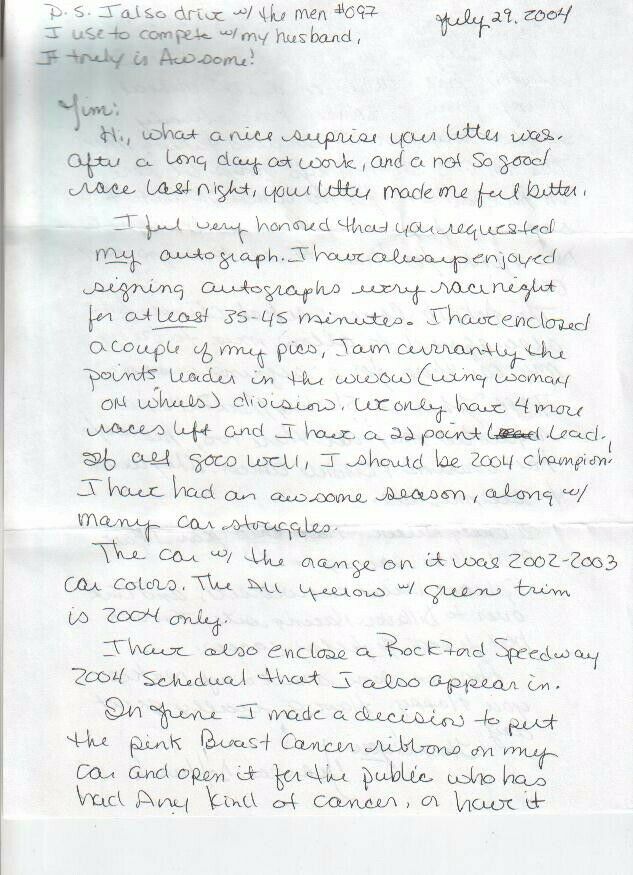 P.S. I also drive w/ the men #097
I use to compete w/ my husband,
It truly is Awsome!
July 29, 2004
Jim:
Hi, what a nice suprise your letter was.
After a long day at work, and a not so good
race last night, your letter made me feel better.
I feel very honored that you requested
my autograph. I have always enjoyed
signing autographs every race night
for at least 35-45 minutes. I have enclosed
a couple of my pics, I am currantly the
points leader in the wwow (wing woman
on wheels) division. We only have 4 more
races left and I have a 22 point lead.
If all goes well, I should be 2004 champion!
I have had an awsome season, along w/
many car struggles.
The car w/ the orange on it was 2002-2003
car colors. The All yellow w/ green trim
is 2004 only.
I have also enclose a Rockford Speedway
2004 Schedual that I also appear in.
In June I made a decision to put
the pink Breast Cancer ribbons on my
car and open it for the public who has
had Any kind of cancer, or have it